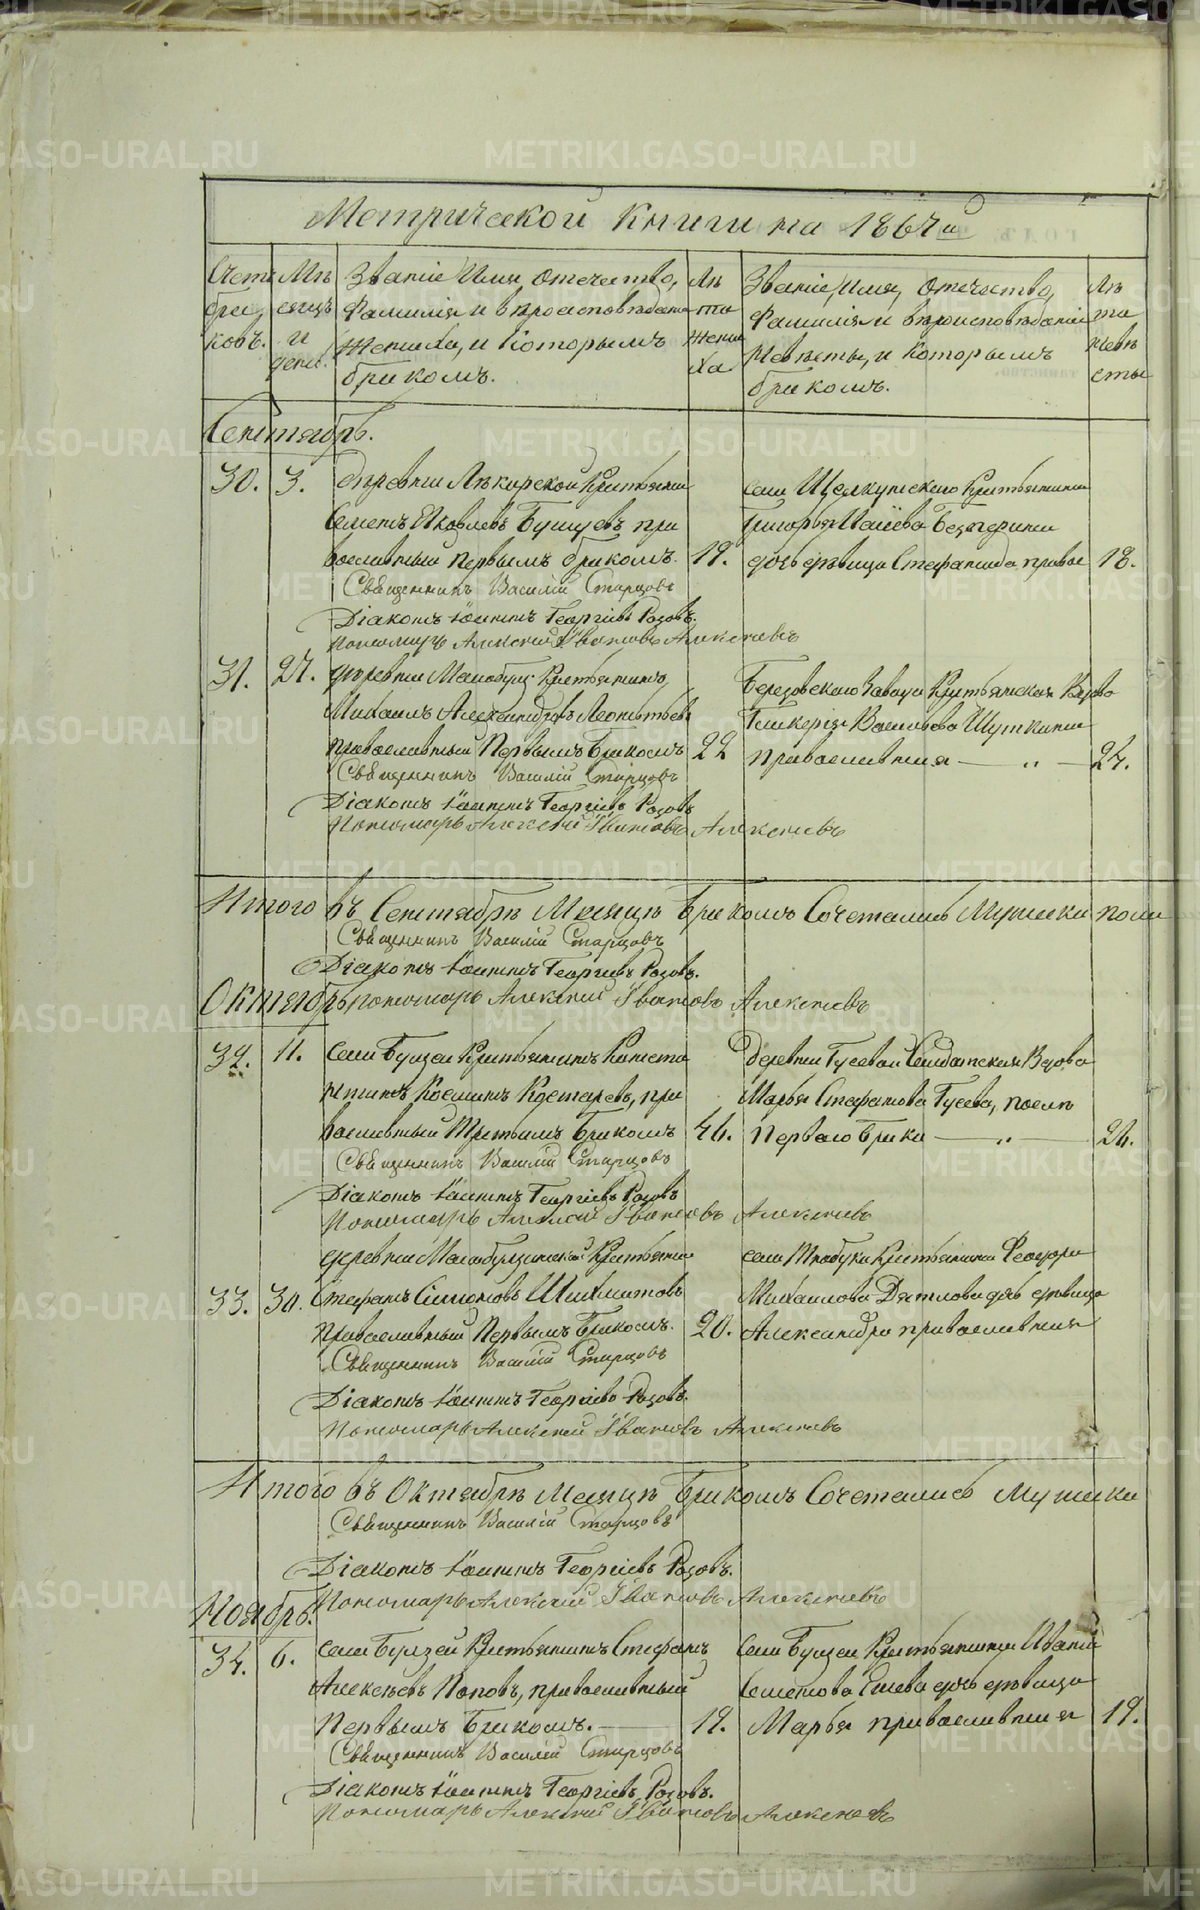 Метрической книги на 1864 й
Счетъ
бра
ковъ.
Мѣ
сяцъ
и
день.
Званіе, Имя, Отечество,
Фамилія и вѣроисповѣданіе
Жениха, и которымъ
бракомъ.
Лѣ
та
жени
ха
Званіе, имя, Отечество,
Фамилія и вѣроисповѣданіе
Невѣсты, и которымъ
бракомъ.
Лѣ
та
невѣ
сты
Сентябрь.
30. 3. деревни крестьянинъ
Семенъ Яковлевъ при
вославный первымъ бракомъ. 19.
села Щелкунскаго крестьянина
Григорья
дочь дѣвица Стефанида правос 18.
Священникъ Василій Старцовъ
Діаконъ Іоаннъ Георгіевъ Розовъ.
Пономарь Алексѣй Ивановъ Алексѣевъ
31. 27. деревни крестьянинъ
Михаилъ Александровъ Леонтьевъ
православный Первымъ Бракомъ 22
Березовскаго Завода Крестьянская Вдова
Гликерія Васильева
православная — „ — 24.
Священникъ Василій Старцовъ
Діаконъ Іоаннъ Георгіевъ Розовъ
Пономарь Алексѣй Ивановъ Алексѣевъ
Итого въ Сентябрѣ Месяцѣ Бракомъ Сочетались Мужеска пола
Священникъ Василій Старцовъ
Діаконъ Іоаннъ Георгіевъ Розовъ.
Октябрь, пономарь Алексѣй Ивановъ Алексѣевъ
32. 11. села Булзей Крестьянинъ Конста
нтинъ Косминъ при
вославный Третьимъ Бракомъ 46.
Деревни Гусевой Солдатская Вдова
Марья Стефанова Гусева, послѣ
Перваго Брака — „ — 26.
Священникъ Василій Старцовъ
Діаконъ Іоаннъ Георгіевъ Розовъ
Пономарь Алексѣй Ивановъ Алексѣевъ
33. 30. деревни Малобулзинской крестьянинъ
Стефанъ Симоновъ
Православный Первымъ Бракомъ. 20.
села Тюбука Крестьянина Феодора
Михаилова Дятлова дочь дѣвица
Александра православная
Священникъ Василій Старцовъ
Діаконъ Іоаннъ Георгіевъ Розовъ.
Пономарь Алексѣй Ивановъ Алексѣевъ
Итого въ Октябрѣ Месяцѣ Бракомъ Сочетались Мужеска
Священникъ Василій Старцовъ
Діаконъ Іоаннъ Георгіевъ Розовъ.
Пономарь Алексѣй Ивановъ Алексѣевъ
Ноябрь.
34. 6. села Булзей Крестьянинъ Стефанъ
Алексѣевъ Поповъ, православный
Первымъ Бракомъ. — 19.
села Булзей Крестьянина Ивана
Семенова дочь дѣвица
Марья православная 19.
Священникъ Василій Старцовъ
Діаконъ Іоаннъ Георгіевъ Розовъ.
Пономарь Алексѣй Ивановъ Алексѣевъ
METRIKI.GASO-URAL.RU